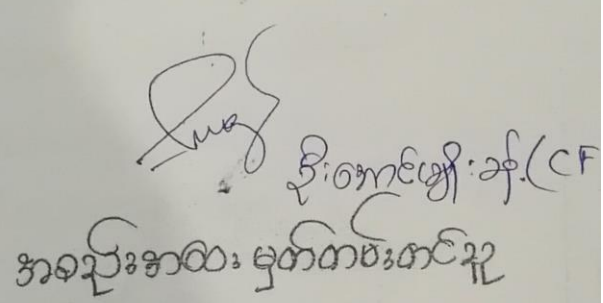 ဦးအောင်မျိုးခန့် (CF
အစည်းအဝေး မှတ်တမ်းတင်သူ